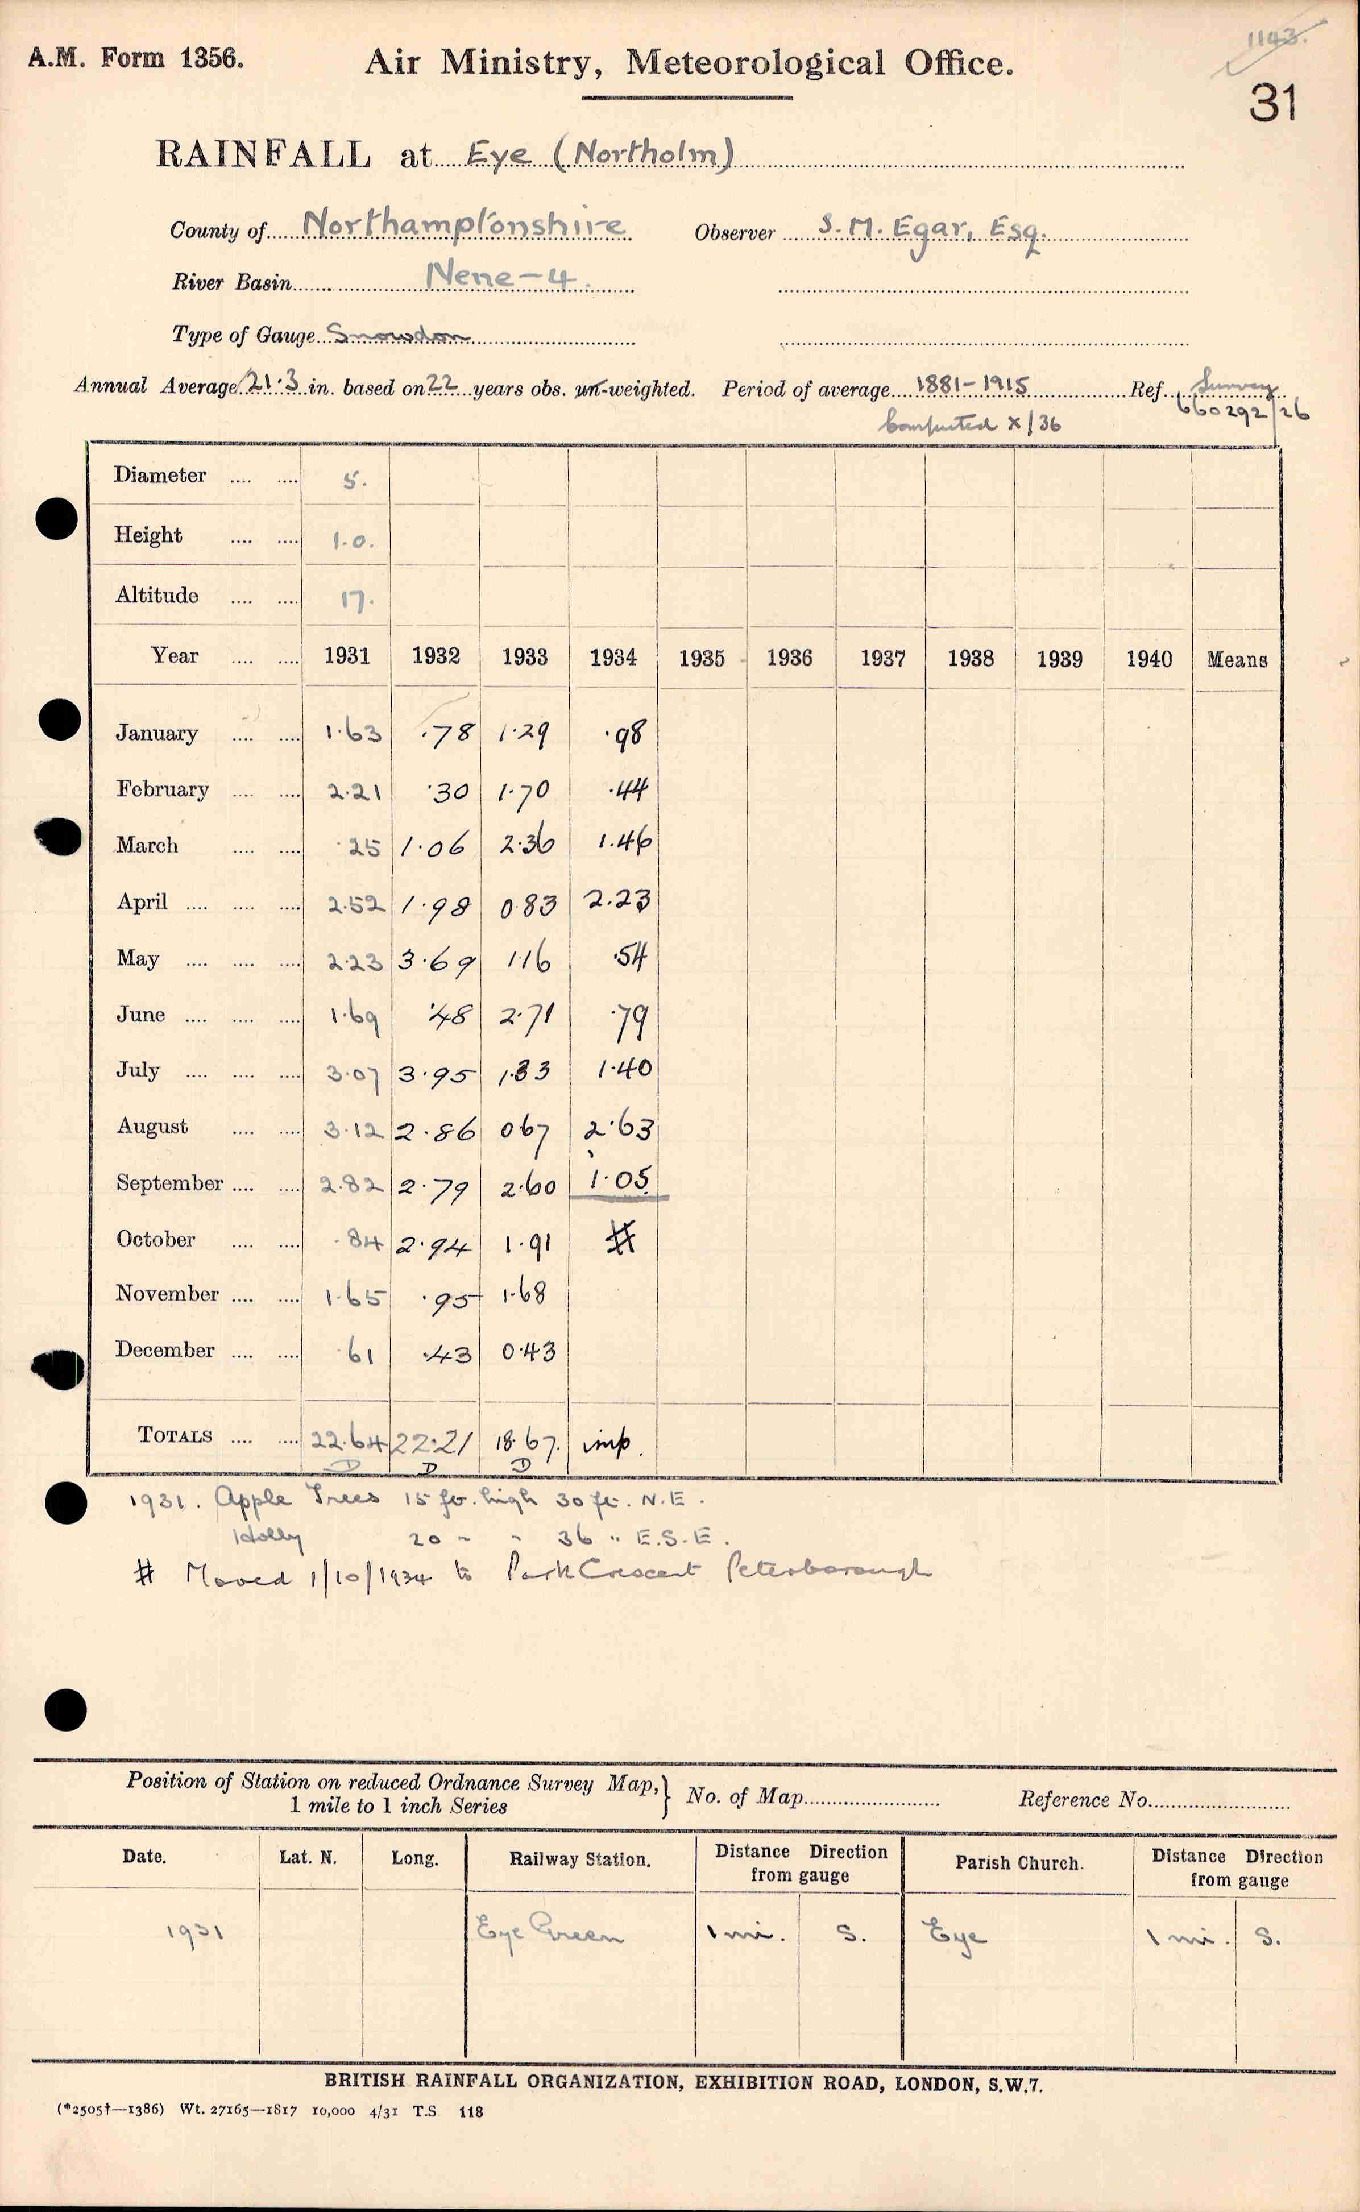 1143.
A.M. Form 1356. Air Ministry, Meteorological Office.
31
RAINFALL at Eye (Northolm)
County of Northamptonshire Observer S. M. Egar, Esq.
River Basin Nene-4.
Type of Gauge Snowdon
Annual Average 21.3 in. based on 22 years obs. un-weighted. Period of average 1881-1915 Ref. Survey
Computed X/36 660292/26
Diameter .... .... 5.
Height .... .... 1.0.
Altitude .... .... 17.
Year .... .... 1931 1932 1933 1934 1935 1936 1937 1938 1939 1940 Means
January .... .... 1.63 .78 1.29 .98
February .... .... 2.21 .30 1.70 .44
March .... .... .25 1.06 2.36 1.46
April .... .... .... 2.52 1.98 0.83 2.23
May .... .... .... 2.23 3.69 1.16 .54
June .... .... .... 1.69 .48 2.71 .79
July .... .... .... 3.07 3.95 1.33 1.40
August .... .... 3.12 2.86 0.67 2.63
September .... .... 2.82 2.79 2.60 1.05
October .... .... .84 2.94 1.91 #
November .... .... 1.65 .95 1.68
December .... .... .61 .43 0.43
TOTALS .... .... 22.64 22.21 18.67. imp.
D D D
1931. Apple Trees 15 ft. high 30 ft. N.E.
Holly 20 " " 36 " E.S.E.
# Moved 1/10/1934 to Park Crescent Peterborough
Position of Station on reduced Ordnance Survey Map, } No. of Map Reference No.
1 mile to 1 inch Series
Date. Lat. N. Long. Railway Station. Distance Direction from gauge Parish Church. Distance Direction from gauge
1931 Eye Green 1 mi. S. Eye 1 mi. S.
BRITISH RAINFALL ORGANIZATION, EXHIBITION ROAD, LONDON, S.W.7.
(*2505†—1386) Wt. 27165—1817 10,000 4/31 T.S. 118